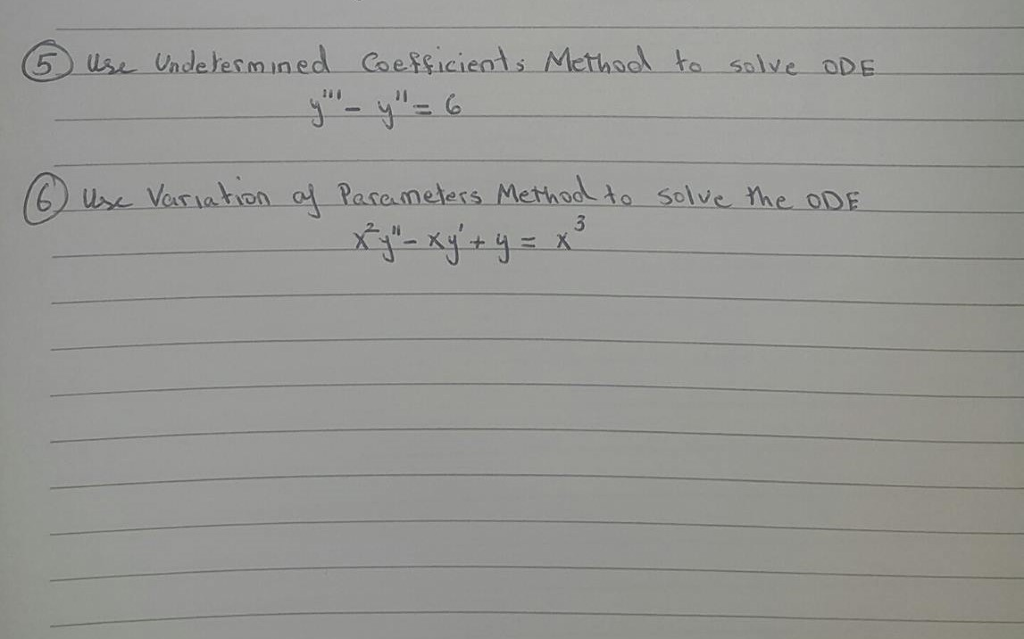 ⑤ Use Undetermined Coefficients Method to solve ODE
y''' - y'' = 6
⑥ Use Variation of Parameters Method to solve the ODE
x²y'' - xy' + y = x³